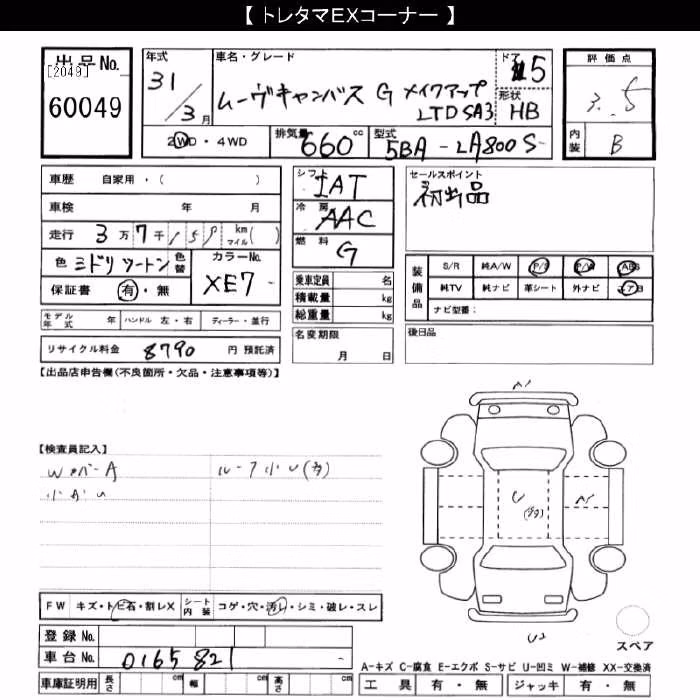 【 トレタマEXコーナー 】
出品No.
[2049]
60049
年式
31/3月
2WD・4WD
車名・グレード
ムーヴキャンバス G メイクアップ
LTD SA3
ドア
5
形状
HB
排気量 660 cc
型式 5BA - LA800S
評価点
3.5
内装 B
車歴 自家用・( )
車検 年 月
走行 3万7千159 km マイル( )
色 ミドリツートン 色替
カラーNo. XE7
保証書 有・無
モデル年式 年 ハンドル 左・右 ディーラー・並行
リサイクル料金 8790 円 預託済
シフト IAT
冷房 AAC
燃料 G
乗車定員 名
積載量 kg
総重量 kg
名変期限
月 日
セールスポイント
初出品
装備品
S/R 純A/W P/S P/W ABS
純TV 純ナビ 革シート 外ナビ エアB
ナビ型番:
後日品
【出品店申告欄(不良箇所・欠品・注意事項等)】
【検査員記入】
ルーフ小U(多)
A1
U
(多)
A1
U2
スペア
FW キズ・トビ石・割レX シート内装 コゲ・穴・汚レ・シミ・破レ・スレ
登録No.
車台No. 0165821
車庫証明用 長さ cm 幅 cm 高さ cm
A-キズ C-腐食 E-エクボ S-サビ U-凹ミ W-補修 XX-交換済
工具 有・無 ジャッキ 有・無